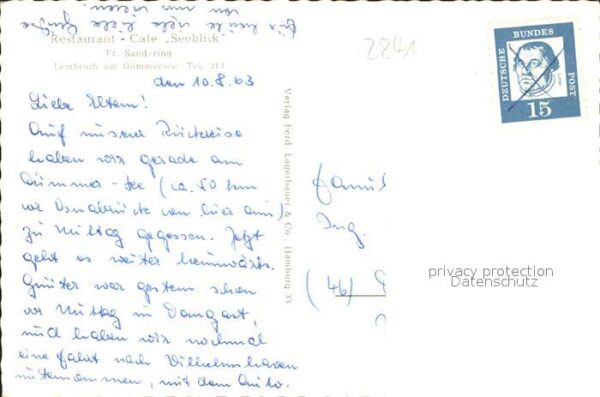 Für heute viele liebe Grüße
von uns vieren
Restaurant - Cafe „Seeblick"
Fr. Sandering
Lembruch am Dümmersee, Tel. 213
den 10.8.63
Liebe Eltern!
Auf unserer Rückreise
haben wir gerade am
Dümmer-See (ca. 50 km
vor Osnabrück von hier aus)
zu Mittag gegessen. Jetzt
geht es weiter heimwärts.
Günter war gestern schon
vor Mittag in Dangast,
und haben wir nochmal
eine Fahrt nach Wilhelmshaven
unternommen, mit dem Auto.
Verlag Ferd. Lagerbauer & Co., Hamburg 33
2841
DEUTSCHE BUNDES POST
15
Famil
Ing.
(46)
privacy protection
Datenschutz